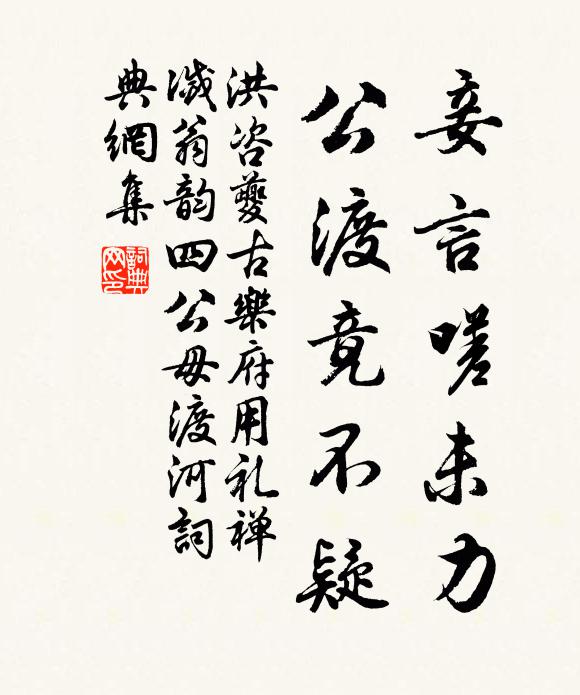 妾言嗟未力
公渡竟不疑
洪咨夔古樂府用礼禅
滅翁韵四公毋渡河詞
典網集
詞典网印